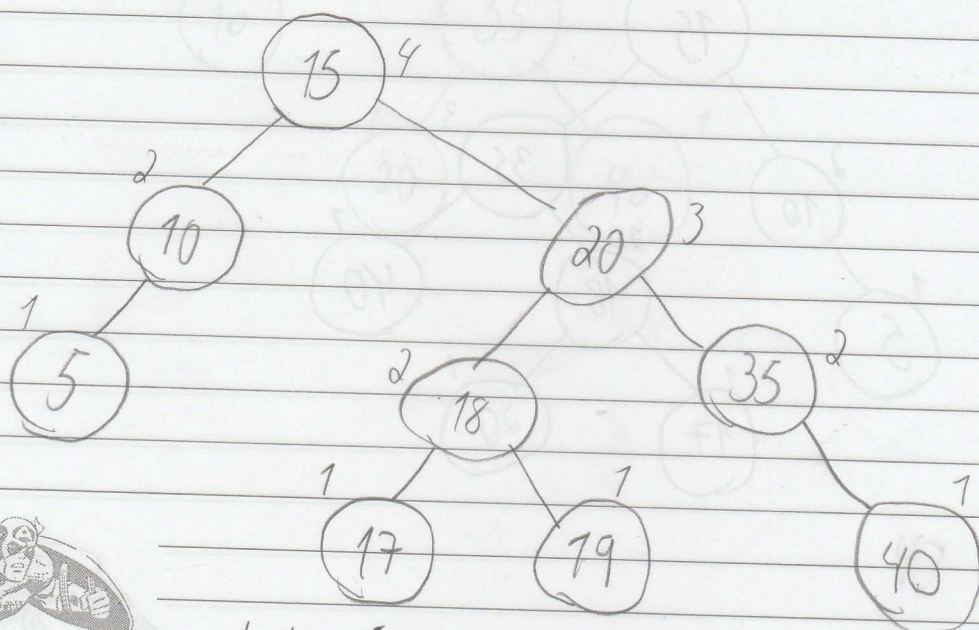 15 4
2
10
20 3
1
5
2
18
35 2
1
17
1
19
1
40